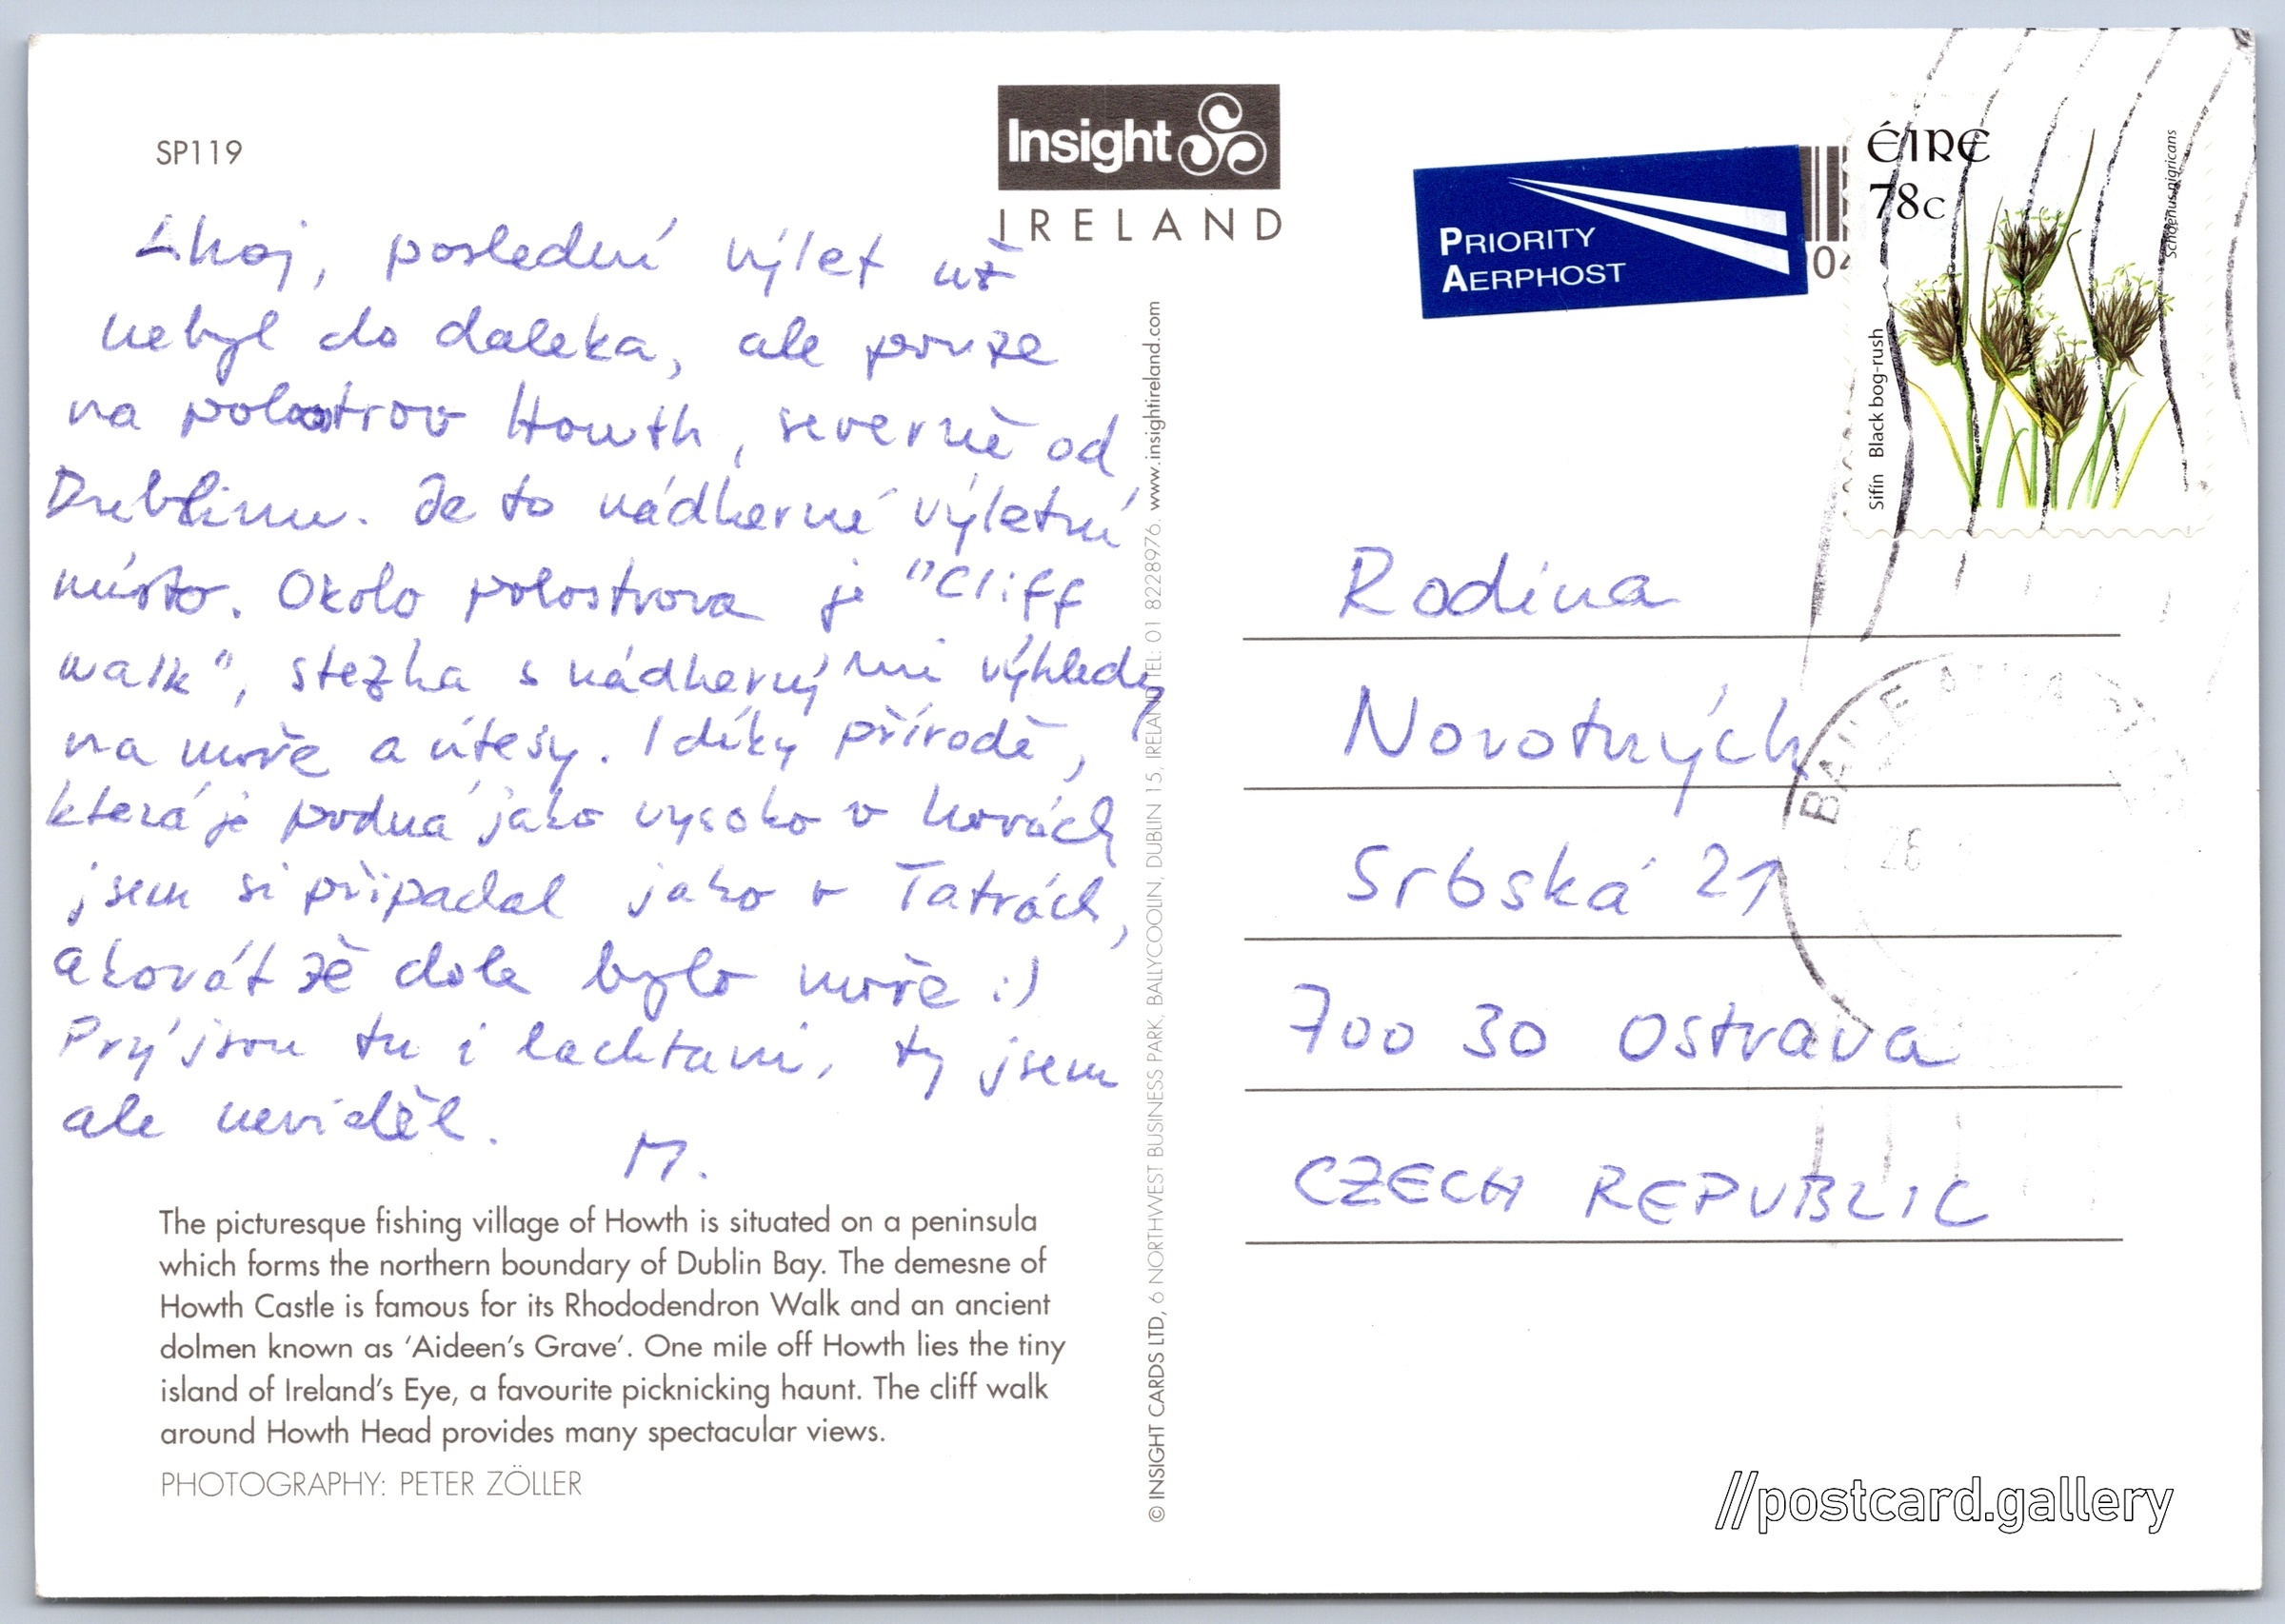 SP119
Insight
IRELAND
Ahoj, poslední výlet už
nebyl do daleka, ale pouze
na poloostrov Howth, severně od
Dublinu. Je to nádherné výletní
místo. Okolo polostrova je "Cliff
walk", stezka s nádhernými výhledy
na moře a útesy. I díky přírodě,
která je podna jako vysoko v horách
jsem si připadal jako v Tatrách,
akorát žě dole bylo moře :)
Prý jsou tu i lachtani, ty jsem
ale neviděl.
M.
The picturesque fishing village of Howth is situated on a peninsula
which forms the northern boundary of Dublin Bay. The demesne of
Howth Castle is famous for its Rhododendron Walk and an ancient
dolmen known as ‘Aideen’s Grave’. One mile off Howth lies the tiny
island of Ireland’s Eye, a favourite picknicking haunt. The cliff walk
around Howth Head provides many spectacular views.
PHOTOGRAPHY: PETER ZÖLLER
© INSIGHT CARDS LTD, 6 NORTHWEST BUSINESS PARK, BALLYCOOLIN, DUBLIN 15, IRELAND TEL: 01 8228976. www.insightireland.com
PRIORITY
AERPHOST
04
ÉIRE
78c
Sifín Black bog-rush
Schoenus nigricans
BAILE
26
Rodina
Novotných
Srbská 21
700 30 Ostrava
CZECH REPUBLIC
//postcard.gallery